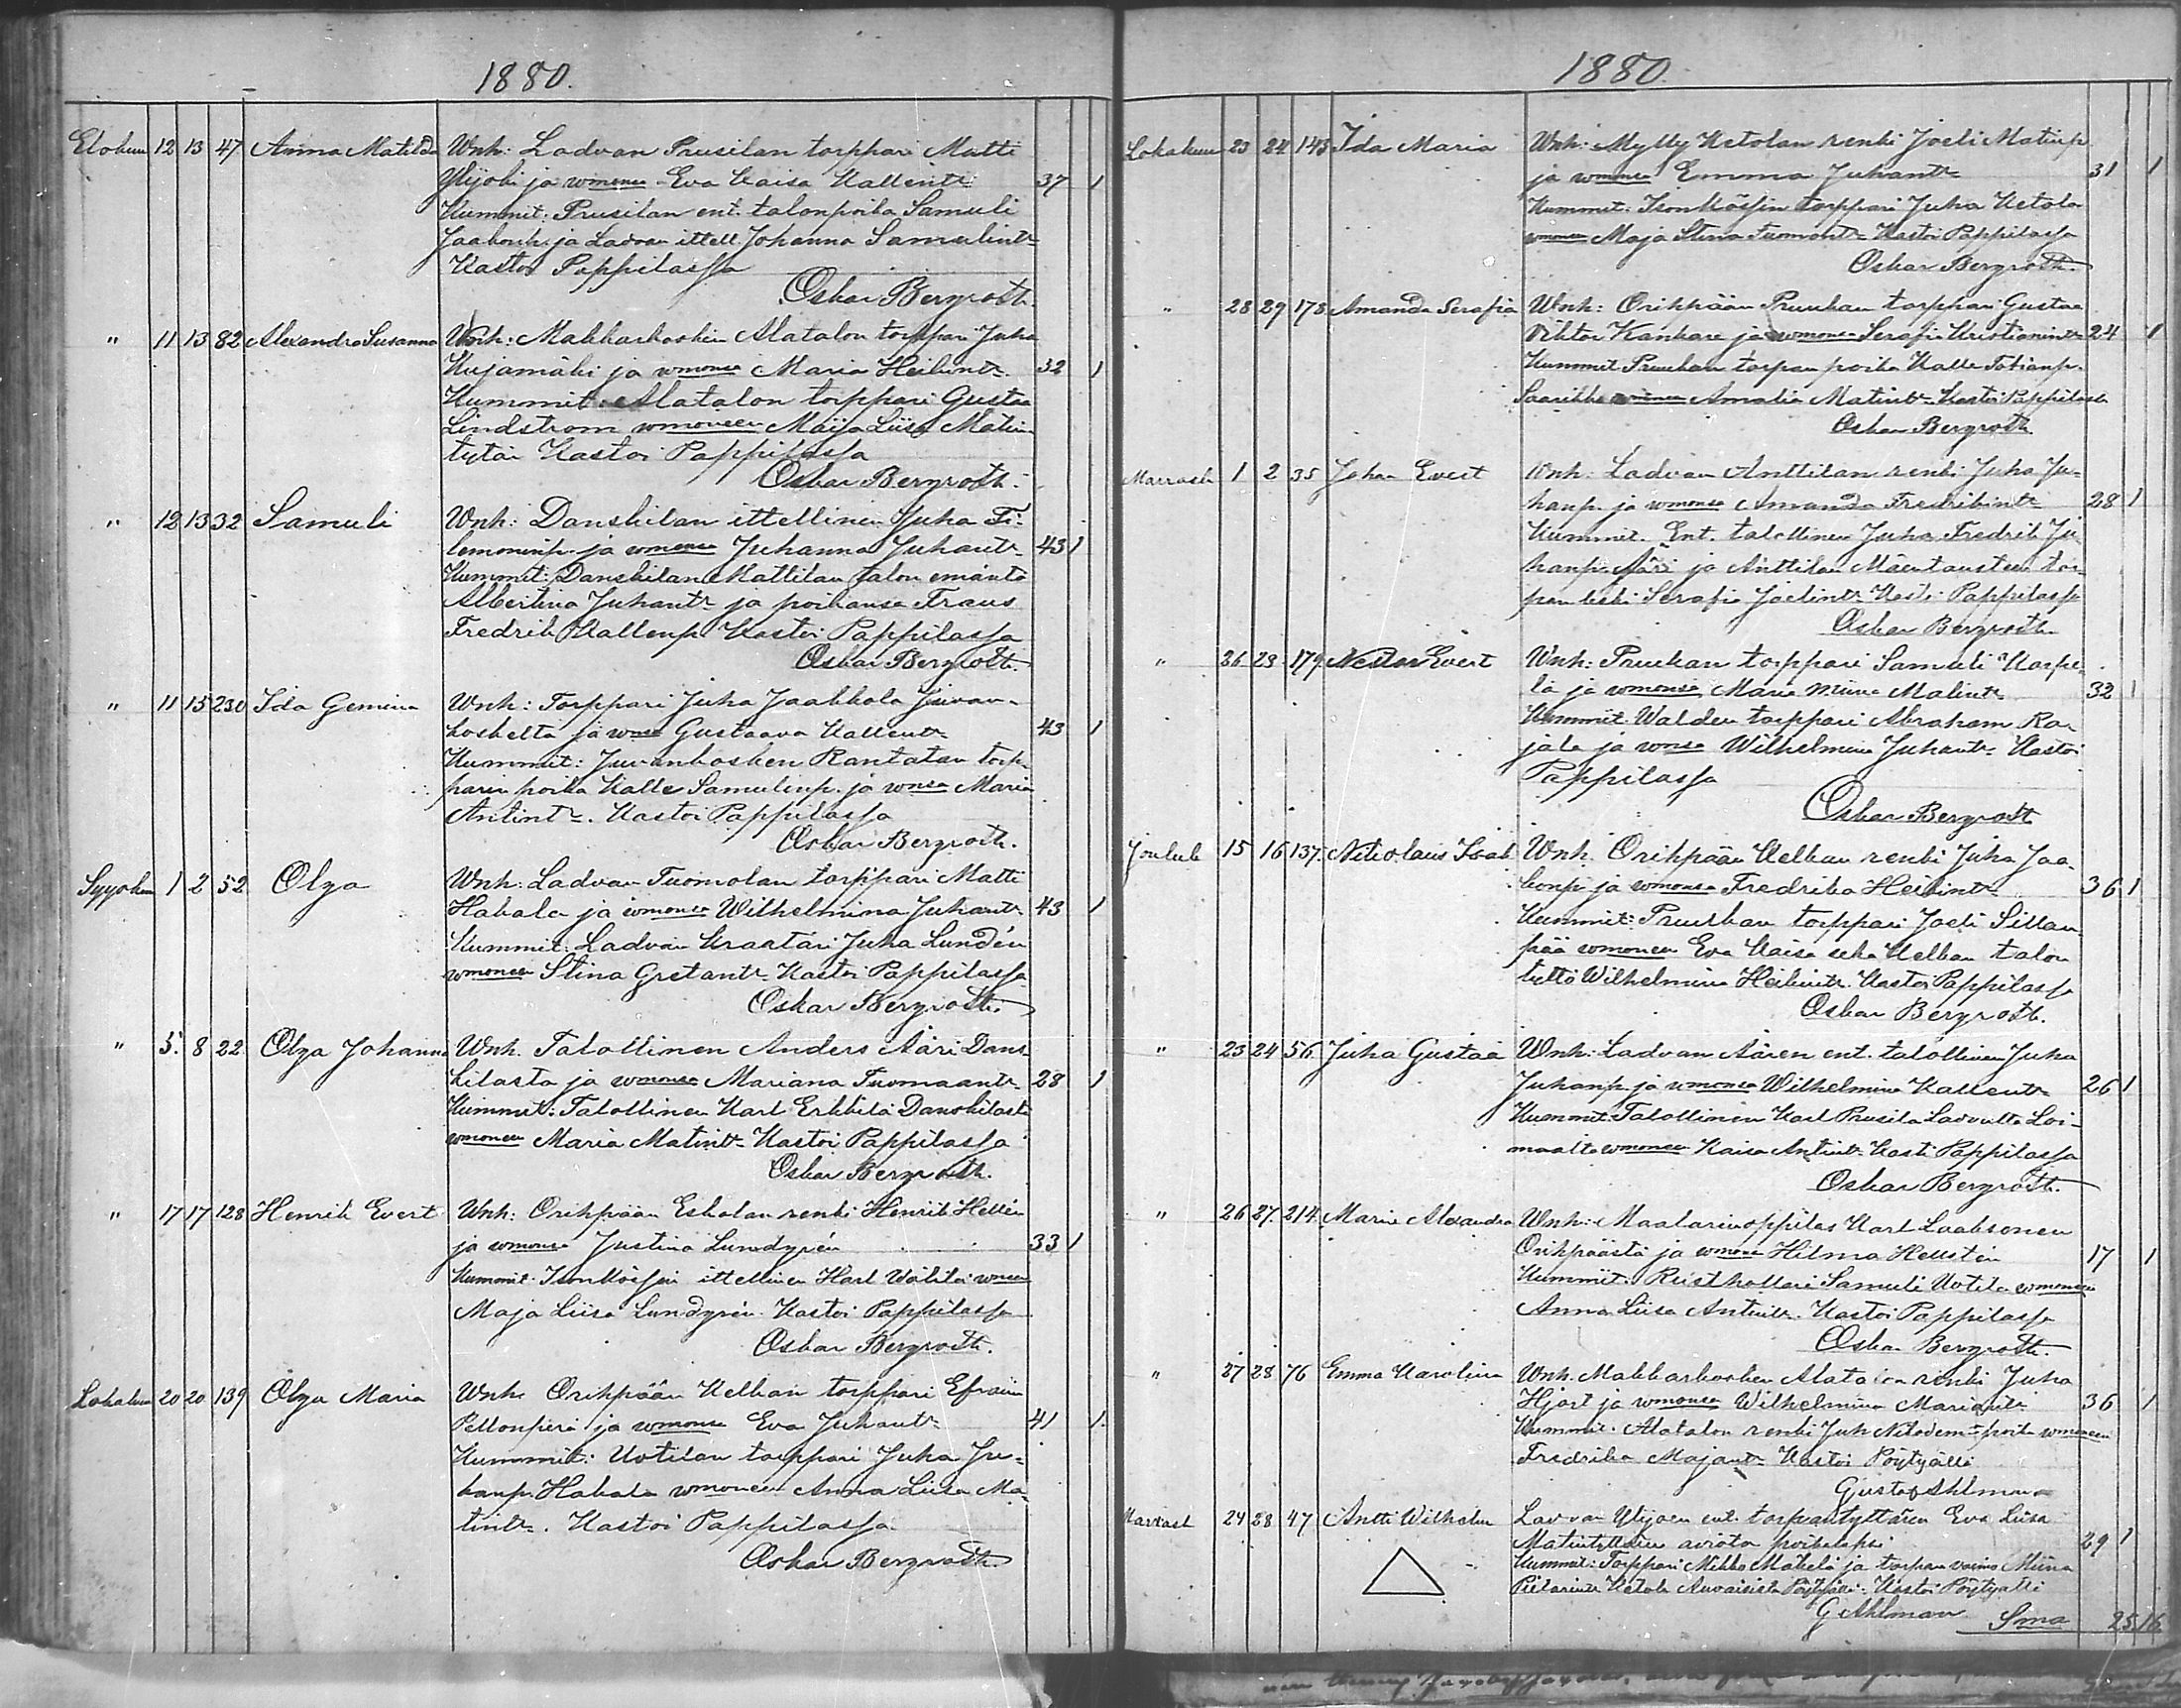 1880.
Elokuu 12 13 47 Anna Matilda Wnh: Ladvan Prusilan torppari Matti
Ylijoki ja womonsa Eva Kaisa Kallentr 37 1
Kummit: Prusilan ent. talonpoika Samuli
Jaakonp. ja Ladvan ittell. Johanna Samulintr
Kastoi Pappilassa
Oskar Bergroth.
" 11 13 82 Alexandra Susanna Wnh: Makkarkosken Alatalon torppari Juha
Kujamäki ja womonsa Maria Heikintr. 32 1
Kummit: Alatalon torppari Gustaa
Lindström womoneen Maija Liisa Matin
tytär Kastoi Pappilassa
Oskar Bergroth.
" 12 13 32 Samuli Wnh: Danskilan ittellinen Juha Fi-
lemoninp. ja womonsa Juhanna Juhantr 43 1
Kummit: Danskilan Mattilan talon emäntä
Albertina Juhantr ja poikansa Frans
Fredrik Kallenp. Kastoi Pappilassa
Oskar Bergroth.
" 11 15 230 Ida Gemina Wnh: Torppari Juha Jaakkola Juvan-
koskelta ja wmsa Gustaava Kallentr 43 1
Kummit: Juvankosken Rantatan torp-
parin poika Kalle Samulinp. ja womsa Maria
Antintr. Kastoi Pappilassa
Oskar Bergroth.
Syysku 1 2 52 Olga Wnh: Ladvan Tuomolan torppari Matti
Hakala ja womonsa Wilhelmina Juhantr 43 1
Kummit: Ladvan Kraatari Juha Lundén
womoneen Stina Gretantr Kastoi Pappilassa
Oskar Bergroth.
" 5. 8 22 Olga Johanna Wnh. Talollinen Anders Ääri Dans-
kilasta ja womonsa Mariana Tuomaantr 28 1
Kummit: Talollinen Karl Erkkilä Danskilasta
womoneen Maria Matintr Kastoi Pappilassa
Oskar Bergroth.
" 17 17 128 Henrik Evert Wnh: Orihpään Eskolan renki Henrik Hellén
ja womonsa Justina Lundgrén 33 1
Kummit: Isonkässin ittellinen Karl womoneen
Maja Liisa Lundgrén. Kastoi Pappilassa
Oskar Bergroth.
Lokakuu 20 20 139 Olga Maria Wnh. Orihpään Uelhan torppari Efraim
Peltonperä ja womonsa Eva Juhantr 41 1
Kummit: Uotilan torppari Juha Ju-
hanp. Hakala womoneen Anna Liisa Ma-
tintr. Kastoi Pappilassa
Oskar Bergroth.
1880.
Lokakuu 23 24 143 Ida Maria Wnh: Mylly Ketolan renki Joeli Matinp
ja womonsa Emma Juhantr 31 1
Kummit: Isonkässin torppari Juha Ketola
womoneen Maja Stina Tuomantr Kastoi Pappilassa
Oskar Bergroth.
" 28 29 178 Amanda Serafia Wnh: Orihpään Pruukan torppari Gustaa
Viktor Kankare ja womonsa Serafia Kristianintr 24 1
Kummit Pruukan torpan poika Kalle Fabianp.
Saarikko womoneen Amalia Matintr Kastoi Pappilassa
Oskar Bergroth
Marrask 1 2 35 Johan Evert Wnh: Ladvan Anttilan renki Juha Ju-
hanp. ja womonsa Amanda Fredrikintr 28 1
Kummit. Ent. talollinen Juha Fredrik Ju
hanp. Ääri ja Anttilan Mäentaustan tor-
pan leski Serafia Joelintr Kasti Pappilassa
Oskar Bergroth.
" 26 28 179 Nestor Evert Wnh: Pruukan torppari Samuli Karpe-
la ja womonsa Maria Miina Matintr 32 1
Kummit. Walden torppari Abraham Kar
jala ja womsa Wilhelmina Juhantr Kastoi
Pappilassa
Oskar Bergroth
Jouluk 15 16 137. Nikolaus Isak Wnh. Orihpään Uelhan renki Juha Jaa-
konp. ja womonsa Fredrika Heikintr 36 1
Kummit: Pruukan torppari Joeli Sillan
pää womoneen Eva Kaisa sekä Uelhan talon
tyttö Wilhelmina Heikintr. Kastoi Pappilassa
Oskar Bergroth.
" 23 24 56 Juha Gustaa Wnh: Ladvan Äären ent. talollinen Juha
Juhanp. ja womonsa Wilhelmina Kallentr 26 1
Kummit: Talollinen Karl Prusila Ladvalta Loi-
maalta womoneen Kaisa Antintr Kasti Pappilassa
Oskar Bergroth.
" 26 27. 214 Maria Alexandra Wnh: Maalarinoppilas Karl Laaksonen
Orihpäästä ja womonsa Hilma Hellstén 17 1
Kummit. Rusthollari Samuli Uotila womoneen
Anna Liisa Antintr. Kastoi Pappilassa
Oskar Bergroth.
" 27 28 76 Emma Karolina Wnh. Makkarkosken Alatalon renki Juha
Hjort ja womonsa Wilhelmina Mariantr 36 1
Kummit. Alatalon renki Juh Nikodem-poika womoneen
Fredrika Majantr Kastoi Pöytyällä
Gustaf Ahlman
Marrask 24 28 47 Antti Wilhelm Lavvan Ylijoen ent. torpantyttären Eva Liisa
Matintyttären avioton poikalapsi 29 1
Kummit: Torppari Mikko Mäkelä ja torpan vaimo Miina
Pietarintr Ketola Auvaisista Pöytyällä. Kastoi Pöytyällä
G Ahlman Sma 25 16